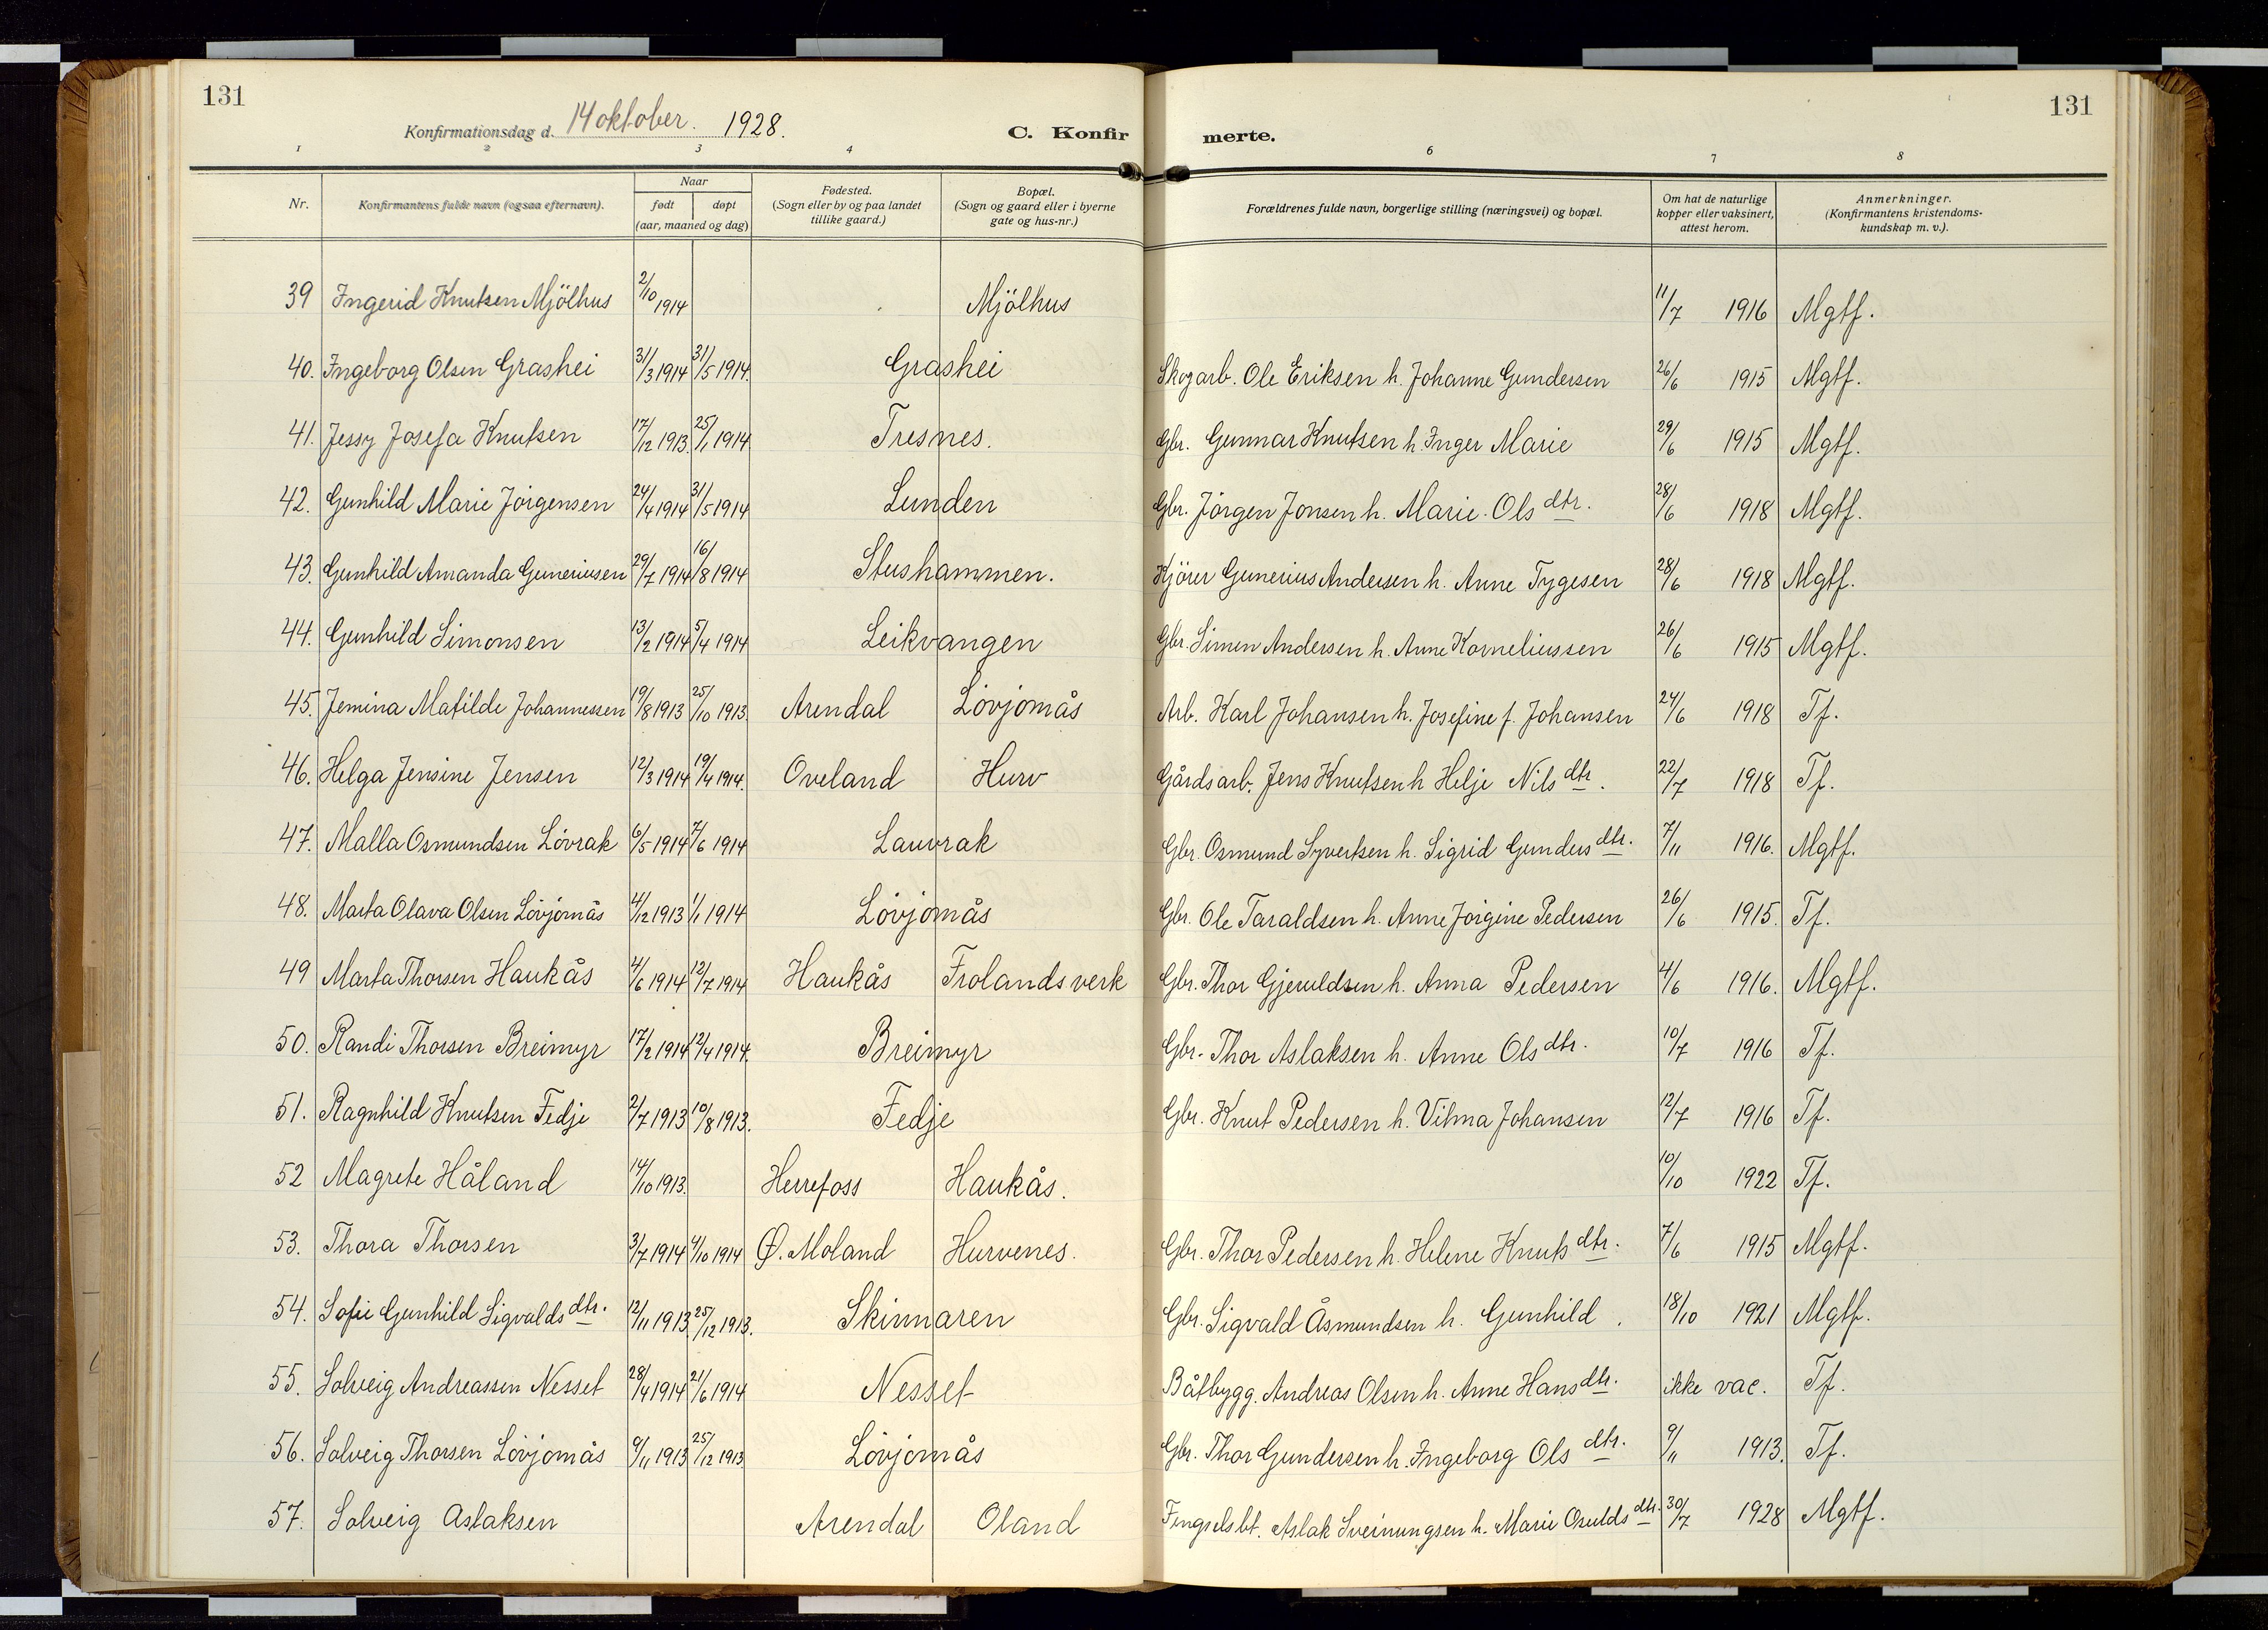 131
131
Konfirmationsdag d. 14 oktober. 1928.
C. Konfir merte.
1 2 3 4 6 7 8
Nr.
Konfirmantens fulde navn (ogsaa efternavn).
Naar
født døpt
(aar, maaned og dag)
Fødested.
(Sogn eller by og paa landet
tillike gaard.)
Bopæl.
(Sogn og gaard eller i byerne
gate og hus-nr.)
Forældrenes fulde navn, borgerlige stilling (næringsvei) og bopæl.
Om hat de naturlige
kopper eller vaksinert,
attest herom.
Anmerkninger.
(Konfirmantens kristendoms-
kundskap m. v.).
39 Ingerid Knutsen Mjölhus 2/10 1914 Mjölhus 11/7 1916 Mgtf.
40. Ingeborg Olsen Grashei 31/3 1914 31/5 1914. Grashei Skogarb. Ole Eriksen h. Johanne Gundersen 26/6 1915 Mgtf.
41. Jessy Josefa Knutsen 17/12 1913. 25/1 1914. Tresnes. Gbr. Gunnar Knutsen h. Inger Marie 29/6 1915 Mgtf.
42. Gunhild Marie Jörgensen 24/4 1914 31/5 1914 Lunden Gbr. Jörgen Jonsen h. Marie Ols dtr. 28/6 1918 Mgtf.
43. Gunhild Amanda Guneriusen 29/7 1914 16/8 1914 Stushammen. Kjörer Gunerius Andersen h. Anne Tygesen 28/6 1918 Mgtf.
44. Gunhild Simonsen 13/2 1914 5/4 1914 Leikvangen Gbr. Simen Andersen h. Anne Korneliussen 26/6 1915 Mgtf.
45. Jemina Matilde Johannessen 19/8 1913 25/10 1913. Arendal Lövjomås Arb. Karl Johansen h. Josefine f. Johansen 24/6 1918 Tf.
46. Helga Jensine Jensen 12/3 1914 19/4 1914. Oveland Hurv Gårdsarb. Jens Knutsen h Helje Nils dtr. 22/7 1918 Tf.
47. Malla Osmundsen Lövrak 6/5 1914 7/6 1914 Lauvrak Gbr. Osmund Syvertsen h. Sigrid Gunders dtr. 7/11 1916. Mgtf.
48. Marta Olava Olsen Lövjomås 4/12 1913 1/1 1914 Lövjomås Gbr. Ole Taraldsen h. Anne Jörgine Pedersen 26/6 1915. Tf.
49 Marta Thorsen Haukås 4/6 1914 12/7 1914 Haukås Frolands verk Gbr. Thor Gjeruldsen h. Anna Pedersen 4/6 1916. Mgtf.
50. Randi Thorsen Breimyr 17/2 1914 12/4 1914. Breimyr Gbr. Thor Aslaksen h. Anne Ols dtr. 10/7 1916 Tf.
51. Ragnhild Knutsen Fedje 2/7 1913 10/8 1913. Fedje Gbr. Knut Pedersen h. Vilma Johansen 12/7 1916 Tf.
52 Magrete Håland 14/10 1913. Herrefoss Haukås. 10/10 1922 Tf.
53. Thora Thorsen 3/7 1914 4/10 1914 Ø. Moland Hurvenes. Gbr. Thor Pedersen h. Helene Knuts dtr. 7/6 1915 Mgtf.
54. Sofie Gunhild Sigvalds dtr. 12/11 1913 25/12 1913. Skinnaren Gbr. Sigvald Åsmundsen h. Gunhild. 18/10 1921 Mgtf.
55. Solveig Andreassen Nesset 28/4 1914 21/6 1914 Nesset Båtbygg. Andreas Olsen h. Anne Hans dtr. ikke vac. Tf.
56. Solveig Thorsen Lövjomås 9/11 1913 25/12 1913 Lövjomås Gbr. Thor Gundersen h. Ingeborg Ols dtr. 9/11 1913. Tf.
57. Solveig Aslaksen Arendal Oland Fengselsbt. Aslak Sveinungsen h. Marie Osulds dtr. 30/7 1928 Mgtf.